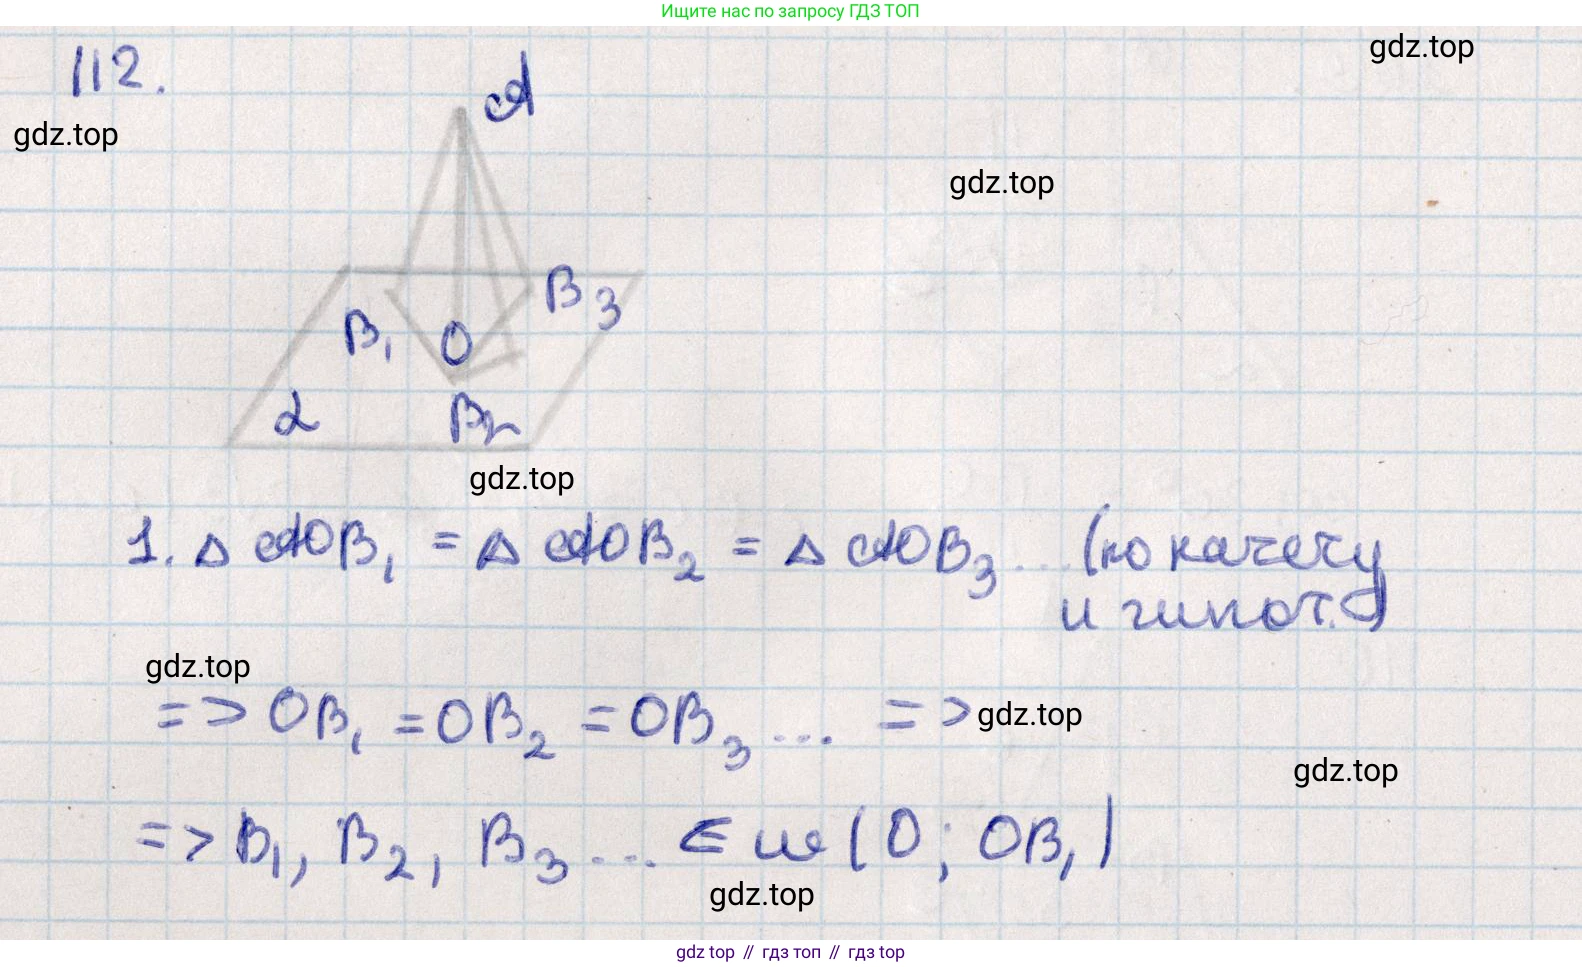 Ищите нас по запросу ГДЗ ТОП
112.
gdz.top
A
gdz.top
gdz.top
B₃
B₁ O
α
B₂
gdz.top
1. △ AOB₁ = △ AOB₂ = △ AOB₃ ... (по катету
и гипот.)
gdz.top
=> OB₁ = OB₂ = OB₃ ... =>
gdz.top
gdz.top
=> B₁, B₂, B₃ ... ∈ (O; OB₁)
gdz.top
gdz top // гдз топ // гдз top